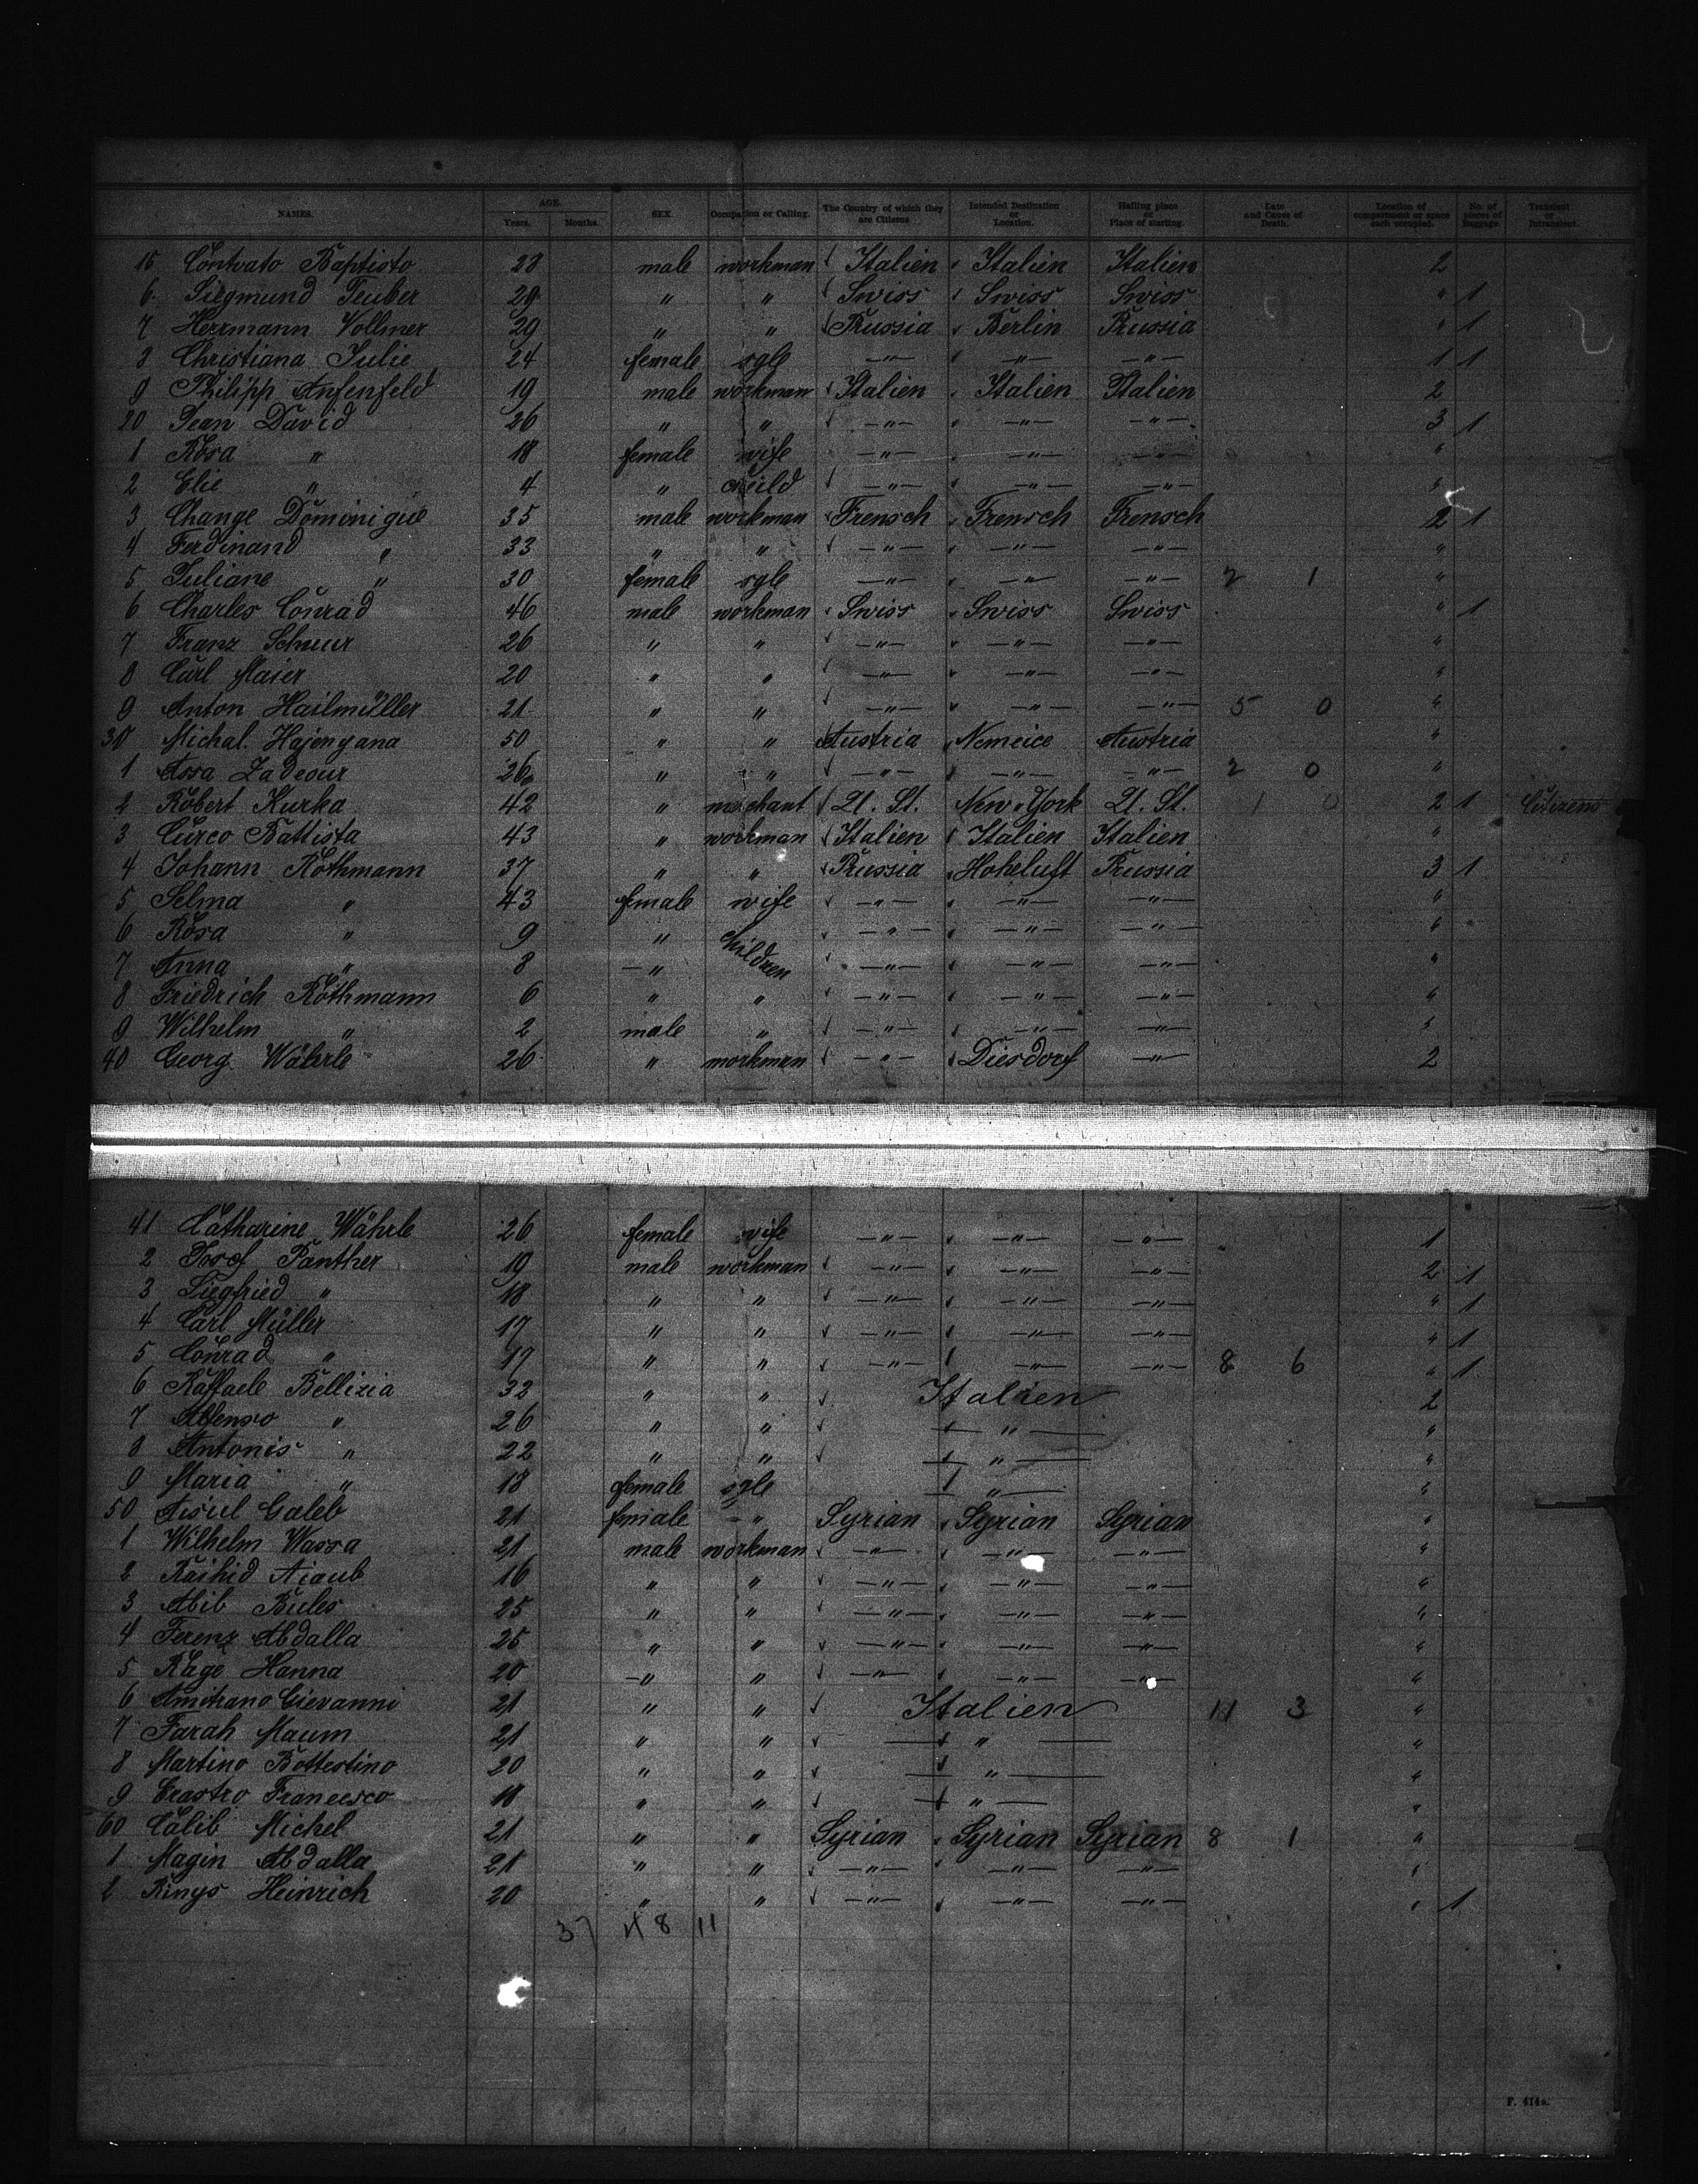 NAMES. AGE. Years. Months. SEX. Occupation or Calling. The Country of which they are Citizens Intended Destination or Location. Hailing place or Place of starting. Date and Cause of Death. Location of compartment or space each occupied. No. of pieces of Baggage. Transient or Intransient.
15 Contrato Baptisto 28 male workman Italien Italien Italien 2
6 Siegmund Teuber 29 " " Swiss Swiss Swiss " 1
7 Herrmann Vollmer 29 " " Prussia Berlin Prussia " 1
8 Christiana Julie 24 female sgle —"— —"— —"— 1 1
9 Philipp Anfenfeld 19 male workman Italien Italien Italien 2
20 Jean David 26 " " —"— —"— —"— 3 1
1 Rosa " 18 female wife —"— —"— —"— "
2 Elie " 4 " child —"— —"— —"— "
3 Change Dominigue 35 male workman Frensch Frensch Frensch 2 1
4 Ferdinand " 33 " " —"— —"— —"— "
5 Juliane " 30 female sgle —"— —"— —"— 2 1 "
6 Charles Conrad 46 male workman Swiss Swiss Swiss " 1
7 Franz Schuur 26 " " —"— —"— —"— "
8 Carl Maier 20 " " —"— —"— —"— "
9 Anton Hailmüller 21 " " —"— —"— —"— 5 0 "
30 Michal Hajengana 50 " " Austria Nemeice Austria "
1 Assa Zadeour 26 " " —"— —"— —"— 2 0 "
2 Robert Kurka 42 " merchant U. St. New-York U. St. 1 0 2 1 Citizens
3 Curco Battista 43 " workman Italien Italien Italien "
4 Johann Rothmann 37 " " Prussia Hoheluft Prussia 3 1
5 Selma " 43 female wife —"— —"— —"— "
6 Rosa " 9 " children —"— —"— —"— "
7 Anna " 8 —" —"— —"— —"— "
8 Friedrich Rothmann 6 " " —"— —"— —"— "
9 Wilhelm " 2 male " —"— —"— —"— "
40 Georg Währle 26 " workman —"— Diesdorf —"— 2
41 Catharine Währle 26 female wife —"— —"— —"— 1
2 Josef Panther 19 male workman —"— —"— —"— 2 1
3 Siegfried " 18 " " —"— —"— —"— " 1
4 Carl Müller 17 " " —"— —"— —"— " 1
5 Conrad " 17 " " —"— —"— —"— 8 6 " 1
6 Raffaele Bellizia 32 " " Italien 2
7 Alfenso " 26 " " —"— "
8 Antonis " 22 " " —"— "
9 Maria " 18 female sgle —"— "
50 Asiul Galeb 21 female —" Syrian Syrian Syrian "
1 Wilhelm Wassa 21 male workman —"— —"— —"— "
2 Raihid Aiaub 16 " " —"— —"— —"— "
3 Abib Bules 25 " " —"— —"— —"— "
4 Ferenz Abdalla 25 " " —"— —"— —"— "
5 Rage Hanna 20 —" " —"— —"— —"— "
6 Amitrano Gievanni 21 " " Italien 11 3 "
7 Farah Maum 21 " " —"— "
8 Martino Bottestino 20 " " —"— "
9 Erastro Francesco 18 " " —"— "
60 Calib Michel 21 " " Syrian Syrian Syrian 8 1 "
1 Magin Abdalla 21 " " —"— —"— —"— "
2 Rinys Heinrich 20 " " —"— —"— —"— " 1
37 48 11
F. 414a.